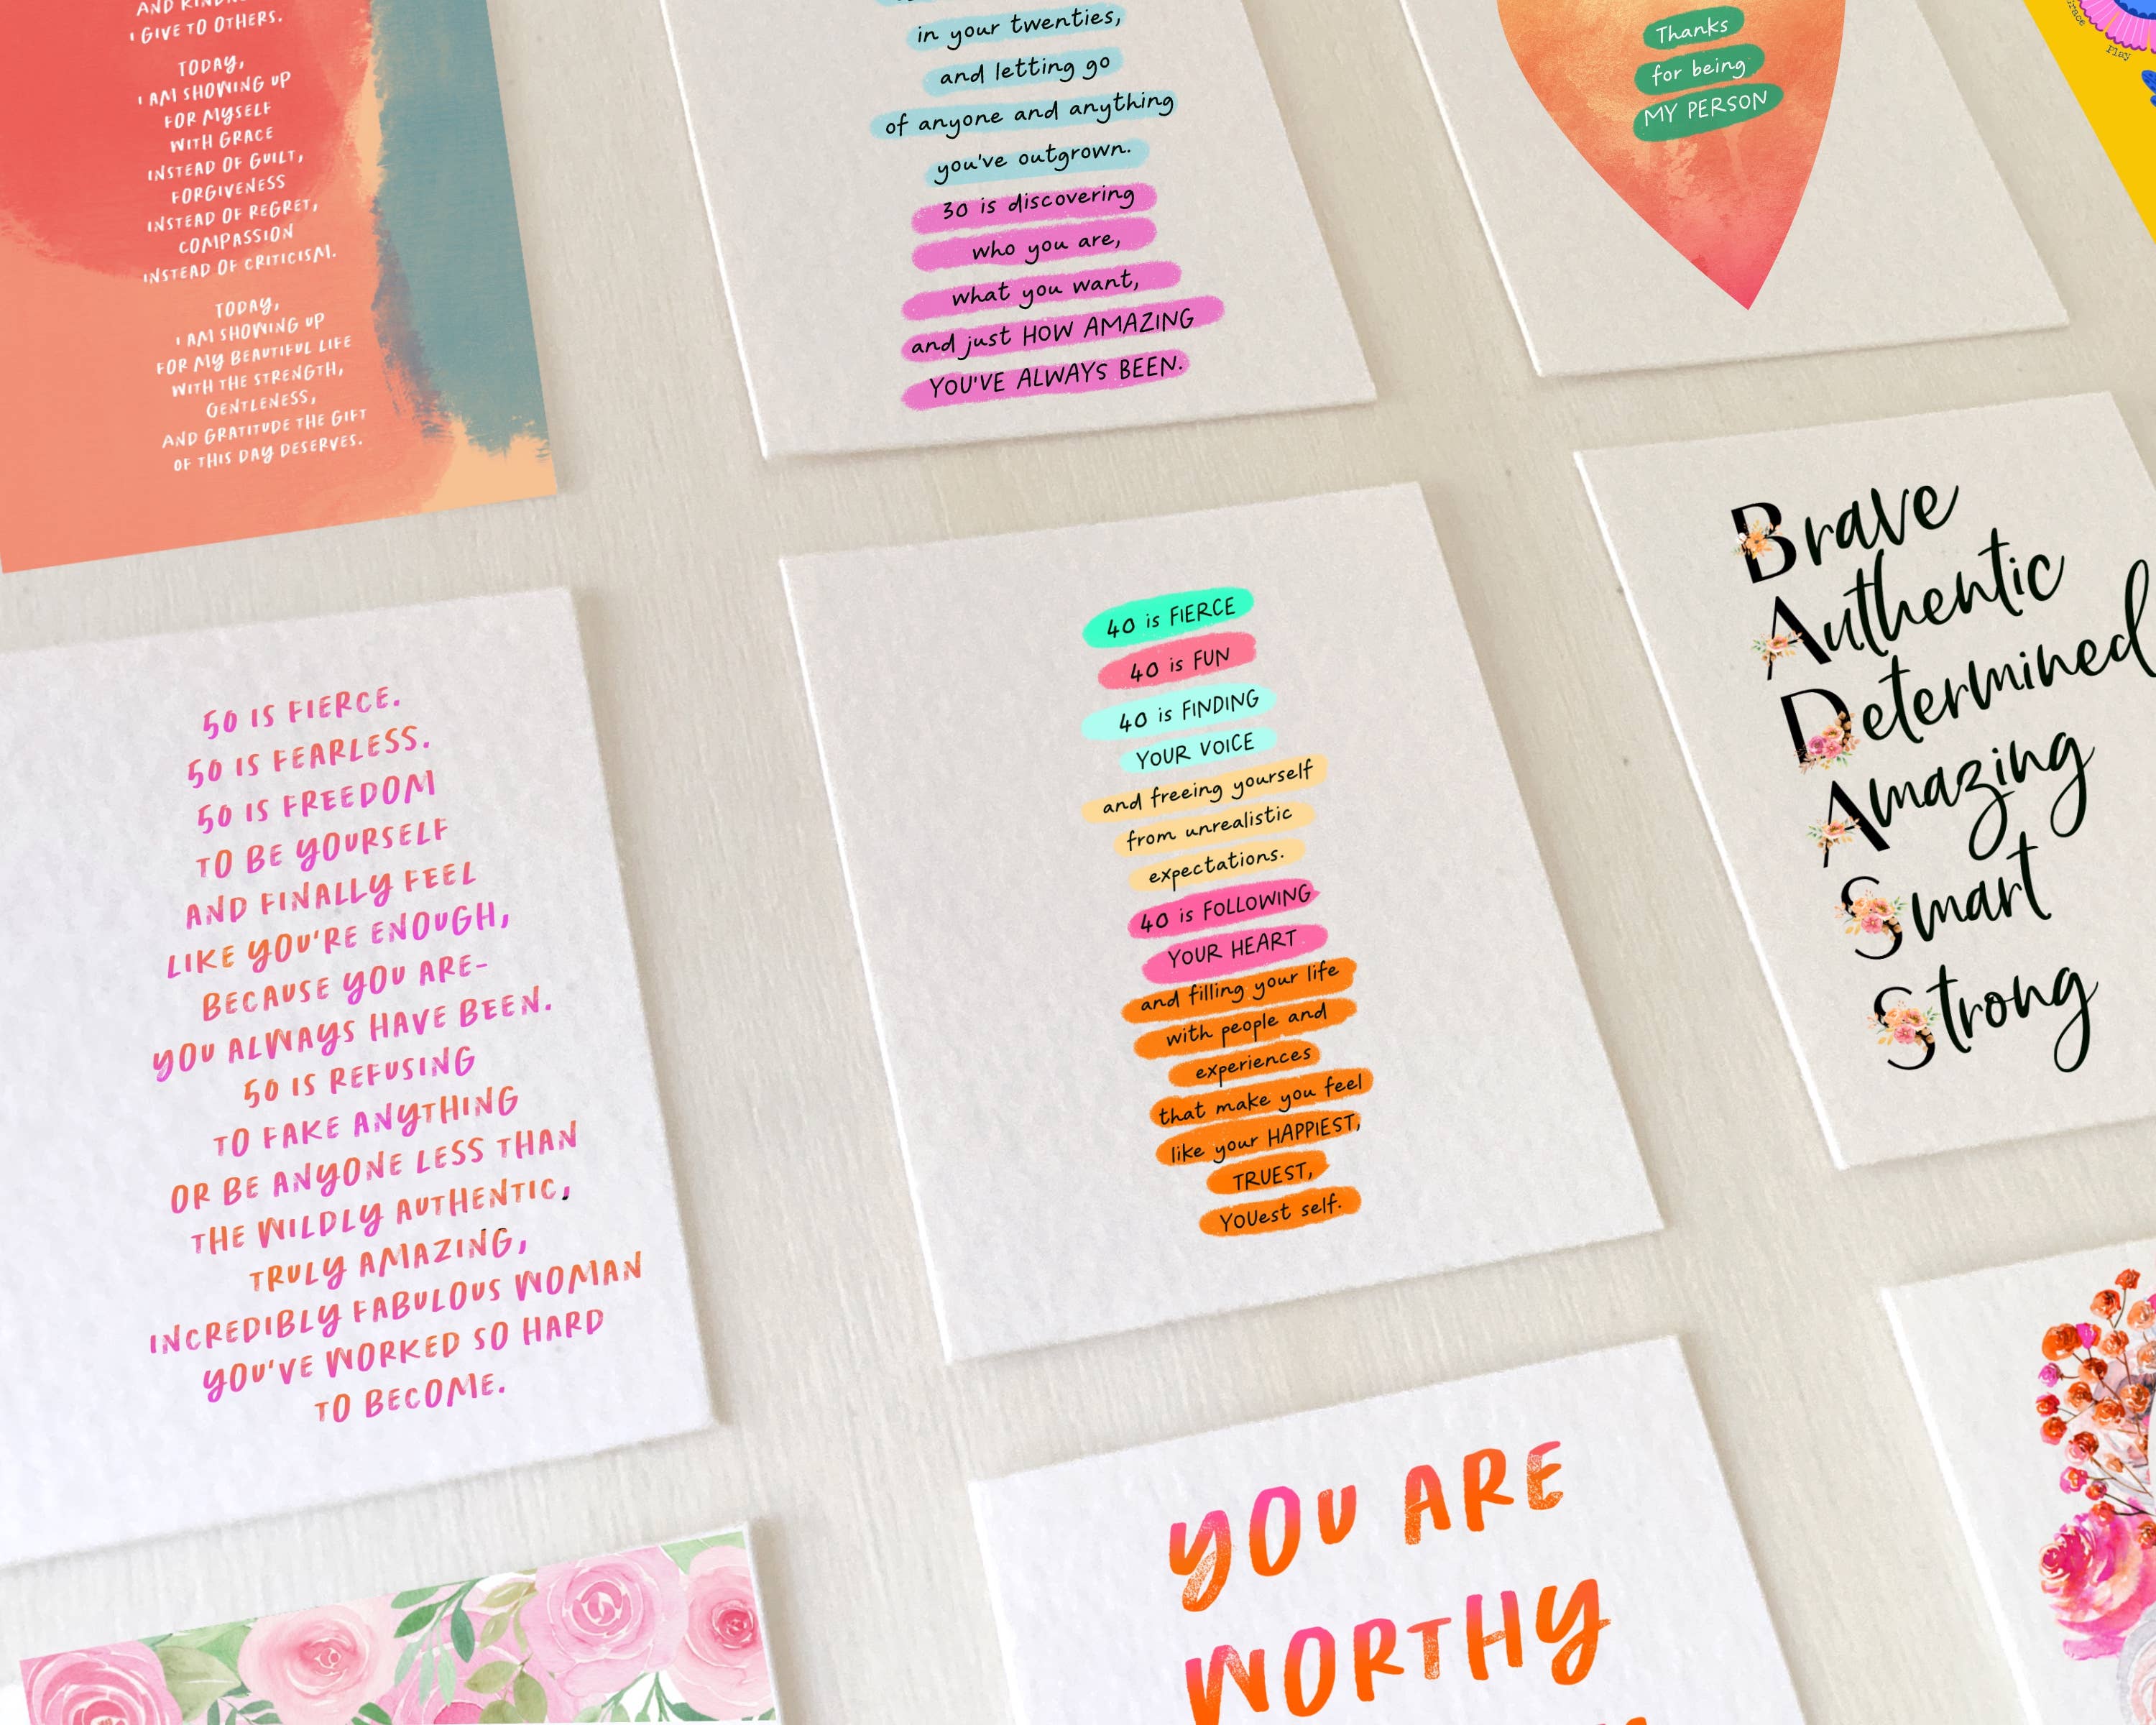 AND
I GIVE TO OTHERS.
TODAY,
I AM SHOWING UP
FOR MYSELF
WITH GRACE
INSTEAD OF GUILT,
FORGIVENESS
INSTEAD OF REGRET,
COMPASSION
INSTEAD OF CRITICISM.
TODAY,
I AM SHOWING UP
FOR MY BEAUTIFUL LIFE
WITH THE STRENGTH,
GENTLENESS,
AND GRATITUDE THE GIFT
OF THIS DAY DESERVES.
in your twenties,
and letting go
of anyone and anything
you've outgrown.
30 is discovering
who you are,
what you want,
and just HOW AMAZING
YOU'VE ALWAYS BEEN.
Thanks
for being
MY PERSON
Play
50 IS FIERCE.
50 IS FEARLESS.
50 IS FREEDOM
TO BE YOURSELF
AND FINALLY FEEL
LIKE YOU'RE ENOUGH,
BECAUSE YOU ARE-
YOU ALWAYS HAVE BEEN.
50 IS REFUSING
TO FAKE ANYTHING
OR BE ANYONE LESS THAN
THE WILDLY AUTHENTIC,
TRULY AMAZING,
INCREDIBLY FABULOUS WOMAN
YOU'VE WORKED SO HARD
TO BECOME.
40 is FIERCE
40 is FUN
40 is FINDING
YOUR VOICE
and freeing yourself
from unrealistic
expectations.
40 is FOLLOWING
YOUR HEART
and filling your life
with people and
experiences
that make you feel
like your HAPPIEST,
TRUEST,
YOUest self.
Brave
Authentic
Determined
Amazing
Smart
Strong
YOU ARE
WORTHY